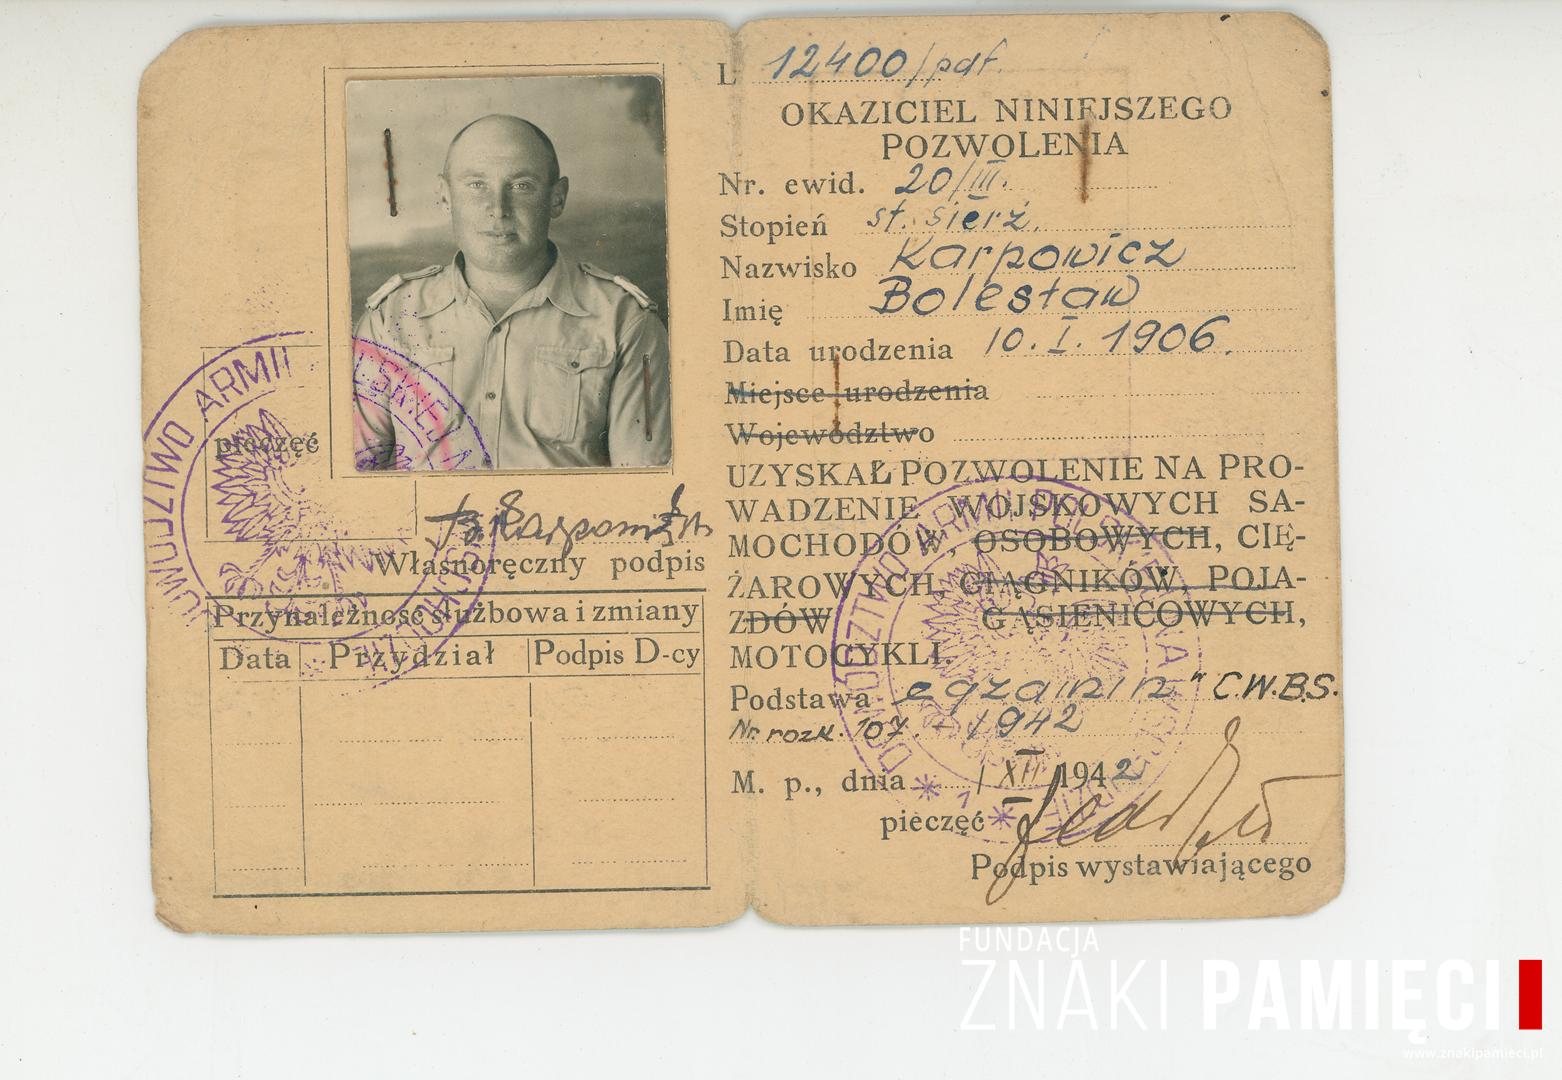 DOWÓDZTWO ARMII POLSKIEJ NA WSCHODZIE
pieczęć
B. Karpowicz
Własnoręczny podpis
Przynależność służbowa i zmiany
Data Przydział Podpis D-cy
L 12400/pdf.
OKAZICIEL NINIEJSZEGO
POZWOLENIA
Nr. ewid. 20/III.
Stopień st. sierż.
Nazwisko Karpowicz
Imię Bolesław
Data urodzenia 10. I. 1906.
Miejsce urodzenia
Województwo
UZYSKAŁ POZWOLENIE NA PRO-
WADZENIE WOJSKOWYCH SA-
MOCHODÓW, OSOBOWYCH, CIĘ-
ŻAROWYCH, CIĄGNIKÓW, POJA-
ZDÓW GĄSIENICOWYCH,
MOTOCYKLI.
Podstawa egzamin " C.W.B.S.
Nr. rozk. 107. - 1942
M. p., dnia 1 XII 1942
pieczęć
Podpis wystawiającego
DOWÓDZTWO ARMII POLSKIEJ NA WSCHODZIE
* 1 *
FUNDACJA
ZNAKI PAMIĘCI
www.znakipamieci.pl